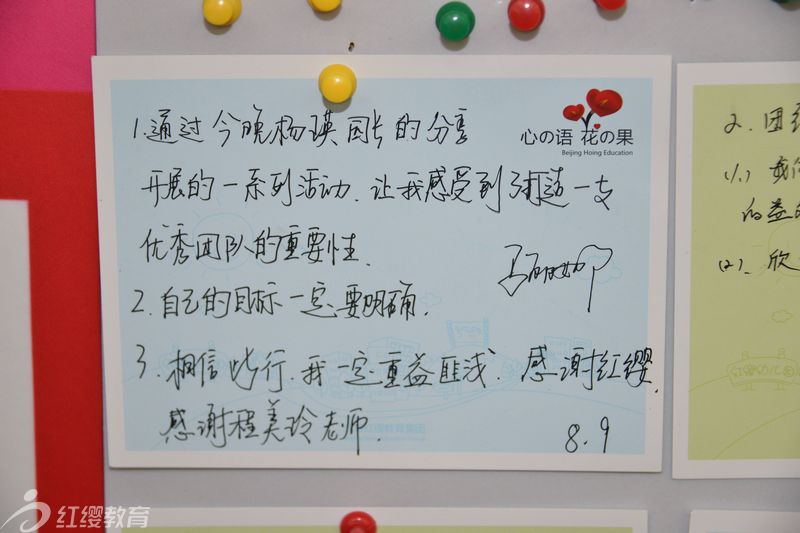 心の语 花の果
Beijing Hoing Education
1.通过今晚杨瑛园长的分享
开展的一系列活动.让我感受到打造一支
优秀团队的重要性.
2.自己的目标一定要明确.
3.相信此行.我一定重益匪浅.感谢红缨.
感谢程美玲老师.
8.9
2.团
(1.)
(2).欣
红缨幼儿园
红缨教育集团
红缨教育